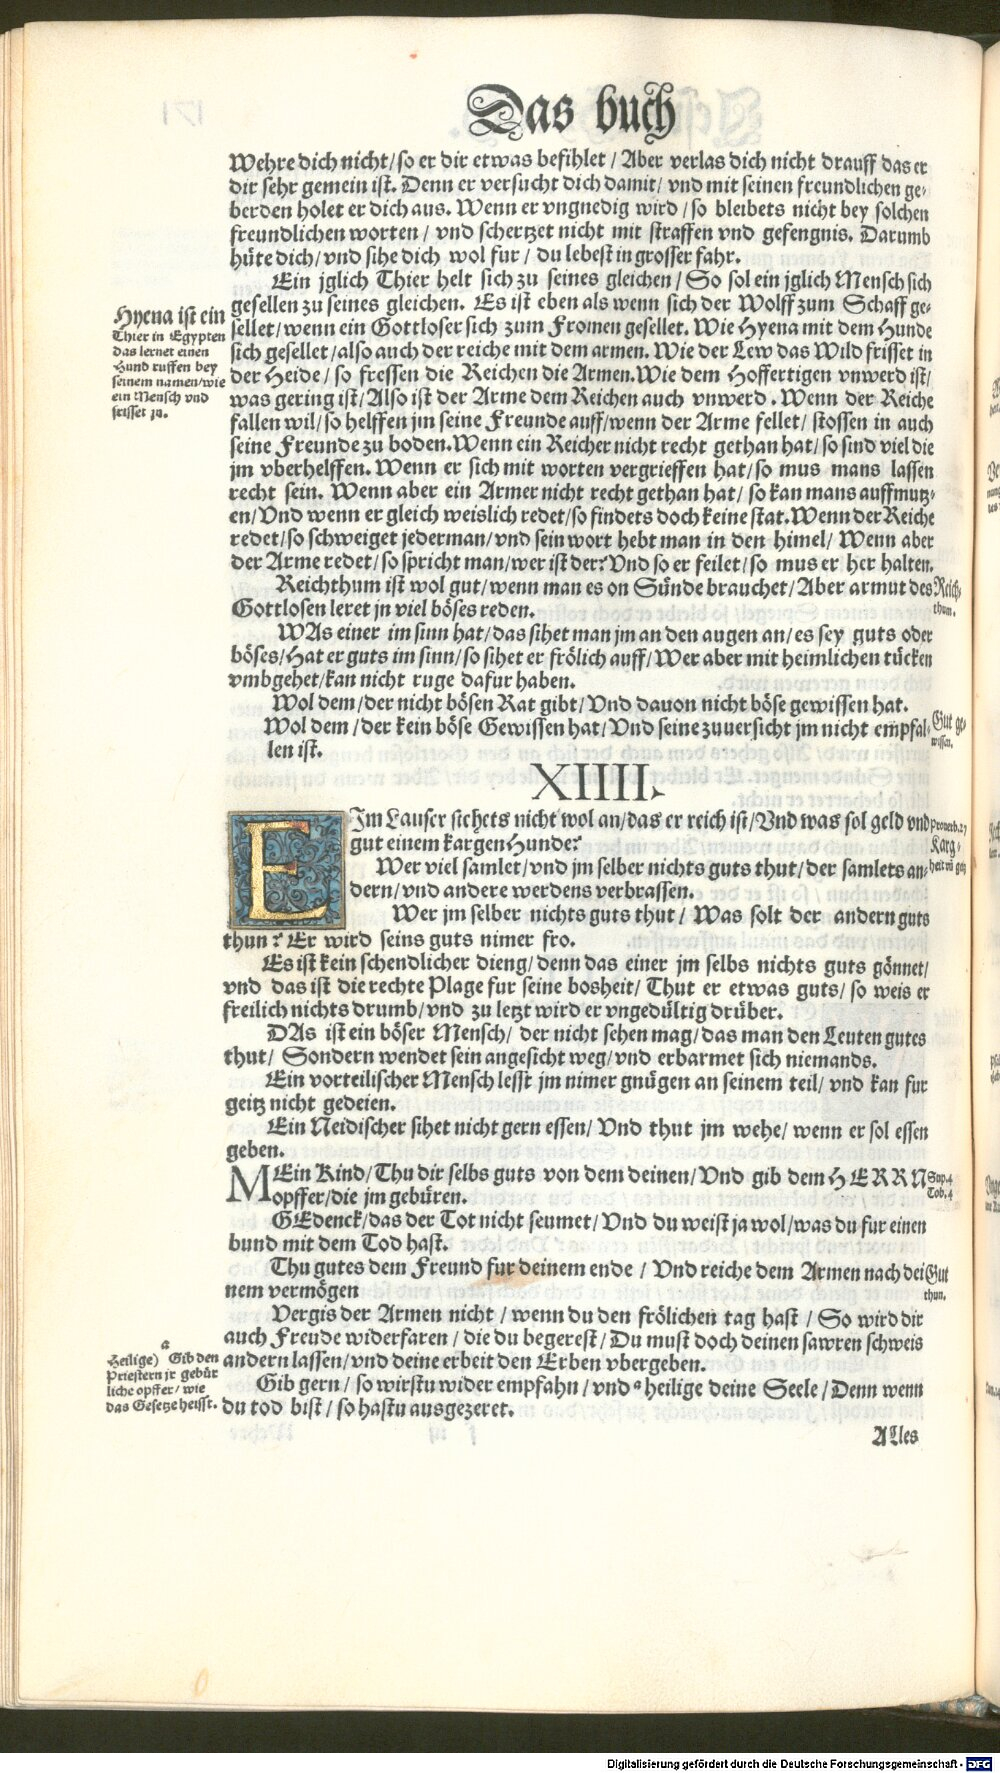 Das buch
Wehre dich nicht/ so er dir etwas befihlet/ Aber verlas dich nicht drauff das er
dir sehr gemein ist. Denn er versucht dich damit/ vnd mit seinen freundlichen ge-
berden holet er dich aus. Wenn er vngnedig wird/ so bleibets nicht bey solchen
freundlichen worten/ vnd schertzet nicht mit straffen vnd gefengnis. Darumb
hüte dich/ vnd sihe dich wol fur/ du lebest in grosser fahr.
Ein jglich Thier helt sich zu seines gleichen/ So sol ein jglich Mensch sich
gesellen zu seines gleichen. Es ist eben als wenn sich der Wolff zum Schaff ge-
sellet/ wenn ein Gottloser sich zum Fromen gesellet. Wie Hyena mit dem Hunde
sich gesellet/ also auch der reiche mit dem armen. Wie der Lew das Wild frisset in
der Heide/ so fressen die Reichen die Armen. Wie dem Hoffertigen vnwerd ist/
was gering ist/ Also ist der Arme dem Reichen auch vnwerd. Wenn der Reiche
fallen wil/ so helffen jm seine Freunde auff/ wenn der Arme fellet/ stossen in auch
seine Freunde zu boden. Wenn ein Reicher nicht recht gethan hat/ so sind viel die
jm vberhelffen. Wenn er sich mit worten vergrieffen hat/ so mus mans lassen
recht sein. Wenn aber ein Armer nicht recht gethan hat/ so kan mans auffmutz-
en/ Vnd wenn er gleich weislich redet/ so findets doch keine stat. Wenn der Reiche
redet/ so schweiget jederman/ vnd sein wort hebt man in den himel/ Wenn aber
der Arme redet/ so spricht man/ wer ist der? Vnd so er feilet/ so mus er her halten.
Reichthum ist wol gut/ wenn man es on Sünde brauchet/ Aber armut des
Gottlosen leret jn viel böses reden.
WAs einer im sinn hat/ das sihet man jm an den augen an/ es sey guts oder
böses/ Hat er guts im sinn/ so sihet er frölich auff/ Wer aber mit heimlichen tücken
vmbgehet/ kan nicht ruge dafur haben.
Wol dem/ der nicht bösen Rat gibt/ Vnd dauon nicht böse gewissen hat.
Wol dem/ der kein böse Gewissen hat/ Vnd seine zuuersicht jm nicht empfal-
len ist.
Hyena ist ein
Thier in Egypten
das lernet einen
Hund ruffen bey
seinem namen/ wie
ein Mensch vnd
frisset jn.
Reich-
thum.
Gut ge-
wissen.
XIIII.
EIm Lauser stehets nicht wol an/ das er reich ist/ Vnd was sol geld vnd
gut einem kargen Hunde?
Wer viel samlet/ vnd jm selber nichts guts thut/ der samlets an-
dern/ vnd andere werdens verbrassen.
Wer jm selber nichts guts thut/ Was solt der andern guts
thun? Er wird seins guts nimer fro.
Es ist kein schendlicher dieng/ denn das einer jm selbs nichts guts gönnet/
vnd das ist die rechte Plage fur seine bosheit/ Thut er etwas guts/ so weis er
freilich nichts drumb/ vnd zu letzt wird er vngedültig drüber.
DAs ist ein böser Mensch/ der nicht sehen mag/ das man den Leuten gutes
thut/ Sondern wendet sein angesicht weg/ vnd erbarmet sich niemands.
Ein vorteilischer Mensch lesst jm nimer gnügen an seinem teil/ vnd kan fur
geitz nicht gedeien.
Ein Neidischer sihet nicht gern essen/ Vnd thut jm wehe/ wenn er sol essen
geben.
MEin Kind/ Thu dir selbs guts von dem deinen/ Vnd gib dem HERRN
opffer/ die jm gebüren.
GEdenck/ das der Tot nicht seumet/ Vnd du weist ja wol/ was du fur einen
bund mit dem Tod hast.
Thu gutes dem Freund fur deinem ende/ Vnd reiche dem Armen nach dei
nem vermögen
Vergis der Armen nicht/ wenn du den frölichen tag hast/ So wird dir
auch Freude widerfaren/ die du begerest/ Du must doch deinen sawren schweis
andern lassen/ vnd deine erbeit den Erben vbergeben.
Gib gern/ so wirstu wider empfahn/ vnd a heilige deine Seele/ Denn wenn
du tod bist/ so hastu ausgezeret.
Prouerb. 27
Karg-
heit vñ geitz
Sup. 4
Tob. 4
Gut
thun.
a
Heilige) Gib den
Priestern jr gebür
liche opffer/ wie
das Gesetze heisst.
ALles
Digitalisierung gefördert durch die Deutsche Forschungsgemeinschaft - DFG